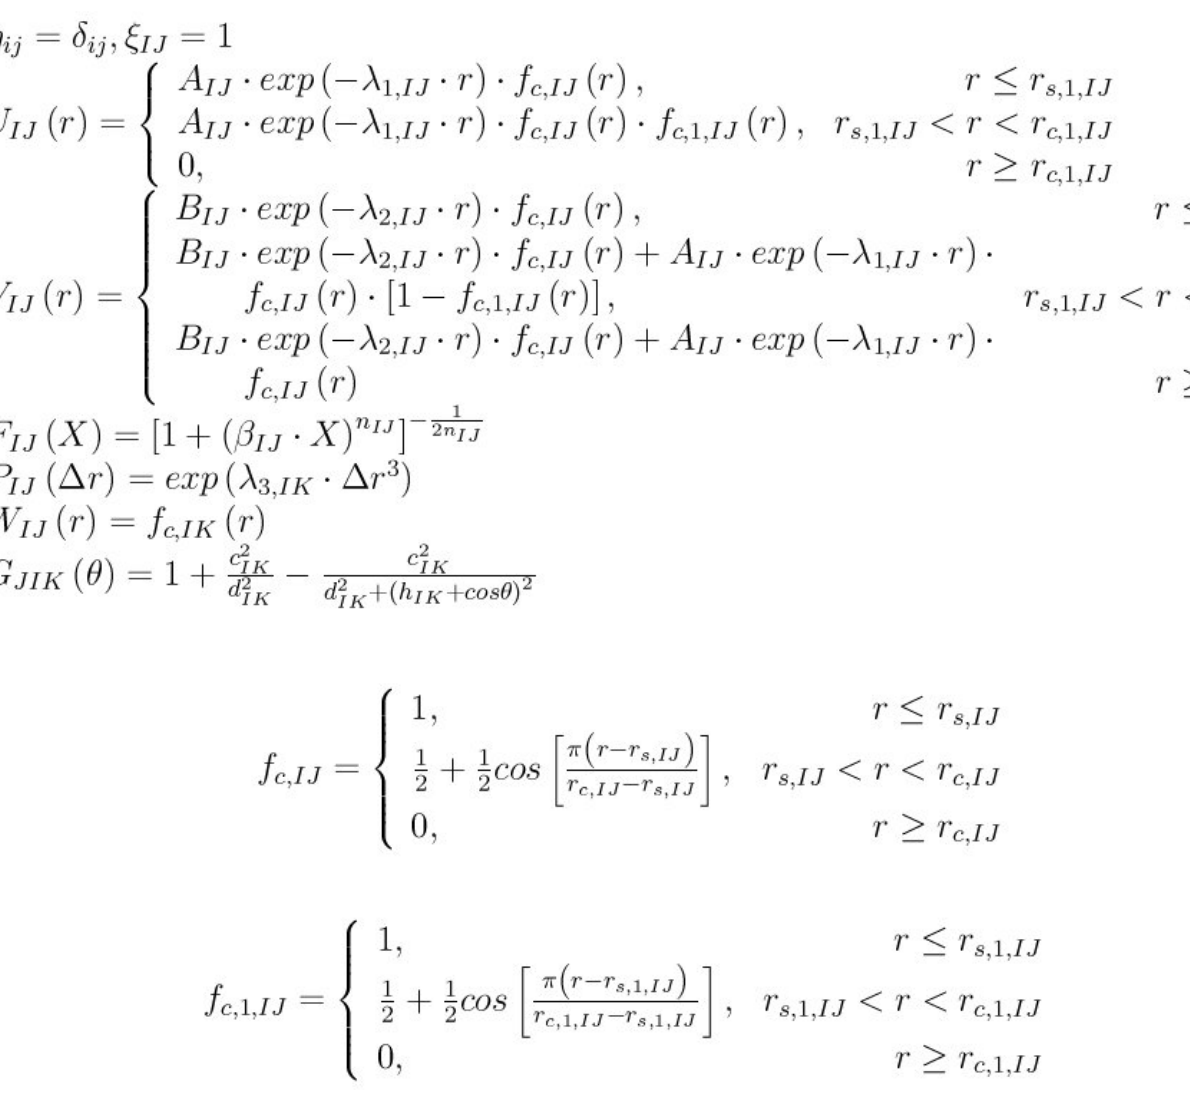 η_{ij} = δ_{ij}, ξ_{IJ} = 1
U_{IJ} (r) = { A_{IJ} · exp (−λ_{1,IJ} · r) · f_{c,IJ} (r) , r ≤ r_{s,1,IJ}
A_{IJ} · exp (−λ_{1,IJ} · r) · f_{c,IJ} (r) · f_{c,1,IJ} (r) , r_{s,1,IJ} < r < r_{c,1,IJ}
0, r ≥ r_{c,1,IJ}
V_{IJ} (r) = { B_{IJ} · exp (−λ_{2,IJ} · r) · f_{c,IJ} (r) , r ≤
B_{IJ} · exp (−λ_{2,IJ} · r) · f_{c,IJ} (r) + A_{IJ} · exp (−λ_{1,IJ} · r) ·
f_{c,IJ} (r) · [1 − f_{c,1,IJ} (r)] , r_{s,1,IJ} < r <
B_{IJ} · exp (−λ_{2,IJ} · r) · f_{c,IJ} (r) + A_{IJ} · exp (−λ_{1,IJ} · r) ·
f_{c,IJ} (r) r ≥
F_{IJ} (X) = [1 + (β_{IJ} · X)^{n_{IJ}}]^{−\frac{1}{2n_{IJ}}}
P_{IJ} (Δr) = exp (λ_{3,IK} · Δr^3)
W_{IJ} (r) = f_{c,IK} (r)
G_{JIK} (θ) = 1 + \frac{c^2_{IK}}{d^2_{IK}} − \frac{c^2_{IK}}{d^2_{IK}+(h_{IK}+cosθ)^2}
f_{c,IJ} = { 1, r ≤ r_{s,IJ}
\frac{1}{2} + \frac{1}{2}cos [\frac{π(r−r_{s,IJ})}{r_{c,IJ}−r_{s,IJ}}] , r_{s,IJ} < r < r_{c,IJ}
0, r ≥ r_{c,IJ}
f_{c,1,IJ} = { 1, r ≤ r_{s,1,IJ}
\frac{1}{2} + \frac{1}{2}cos [\frac{π(r−r_{s,1,IJ})}{r_{c,1,IJ}−r_{s,1,IJ}}] , r_{s,1,IJ} < r < r_{c,1,IJ}
0, r ≥ r_{c,1,IJ}